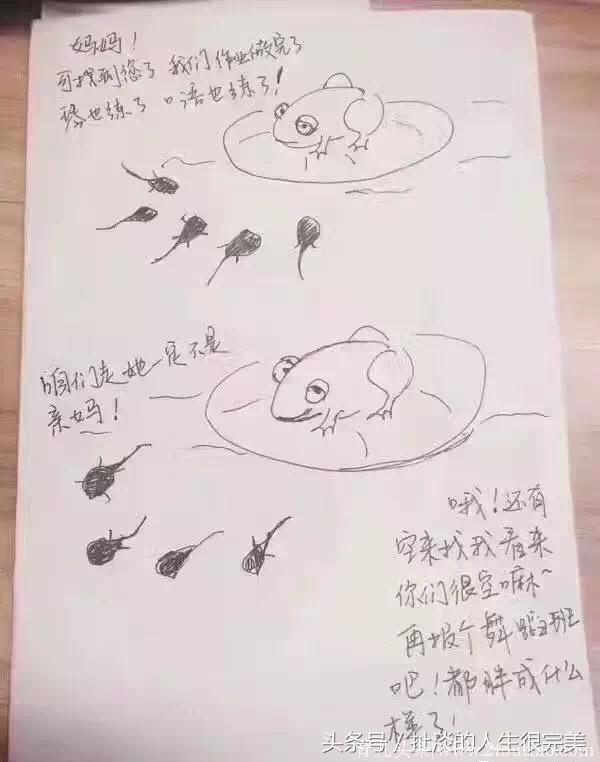 妈妈！
可找到您了 我们作业做完了
琴也练了 口语也练了！
咱们走她一定不是
亲妈！
哦！还有
空来找我看来
你们很空嘛~
再报个舞蹈班
吧！都胖成什么
样了！
头条号／扯淡的人生很完美